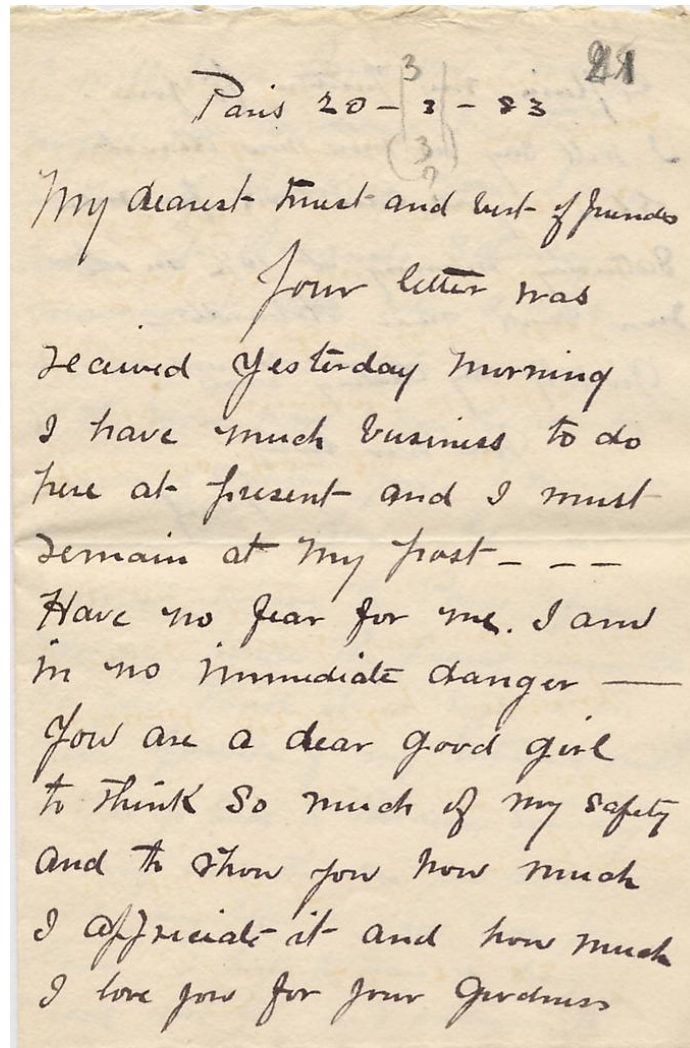 21
3
Paris 20 - 3 - 83
(3
?
My dearest truest and best of friends
Your letter was
received yesterday morning
I have much business to do
here at present and I must
remain at my post - - -
Have no fear for me. I am
in no immediate danger —
You are a dear good girl
to think so much of my safety
and to show you how much
I appreciate it and how much
I love you for your goodness